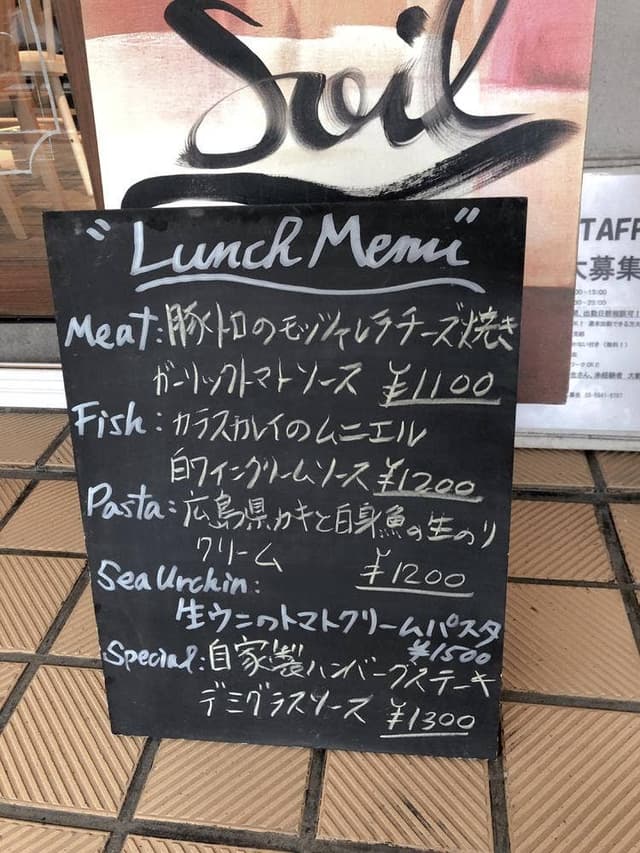 Soil
"Lunch Menu"
Meat: 豚トロのモッツァレラチーズ焼き
ガーリックトマトソース ¥1100
Fish: カラスカレイのムニエル
白ワインクリームソース ¥1200
Pasta: 広島県カキと白身魚の生のり
クリーム ¥1200
Sea Urchin:
生ウニのトマトクリームパスタ
¥1500
Special: 自家製ハンバーグステーキ
デミグラスソース ¥1300
TAFF
大募集